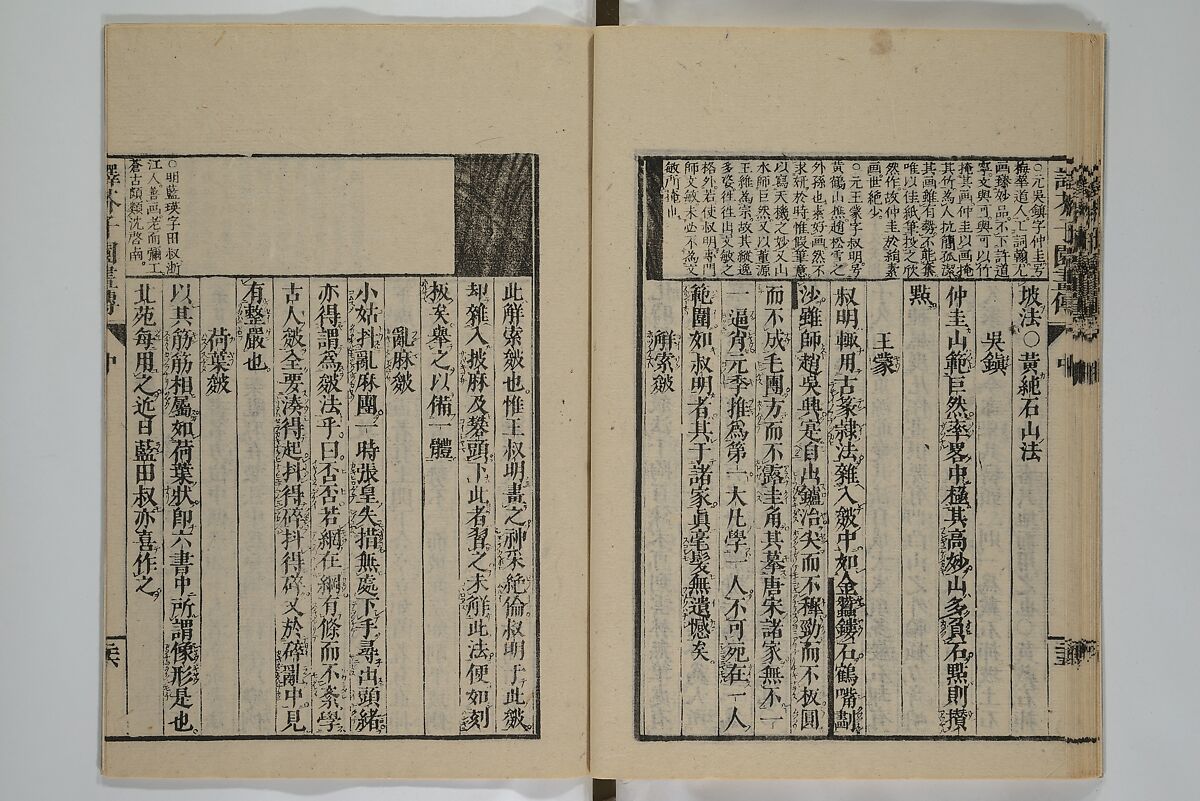 坡法○黄純石山法
吳鎮
仲圭山範巨然率畧中極其高妙山多負石點則攢
點
王蒙
叔明輙用古篆隷法雜入皴中如金鑽鏤石鶴嘴劃
沙雖師趙吳興定自出鑪冶尖而不穉勁而不板圓
而不成毛團方而不露圭角其摹唐宋諸家無不一
一逼肖元季推為第一大凡學一人不可死在一人
範圍如叔明者其于諸家眞毫髮無遺憾矣
解索皴
○元吳鎮字仲圭号
梅華道人工詞翰尤
画臻妙品不下許道
寧文與可與可以竹
掩其画仲圭以画掩
其竹為人抗簡孤潔
其画雖有勢不能奪
唯以佳紙筆投之欣
然作故仲圭於絹素
画世絶少
○元王蒙字叔明号
黄鶴山樵趙松雪之
外孫也素好画然不
求玩於時惟假筆意
以寫天機之妙又山
水師巨然又以董源
王維為宗故其縱逸
多姿往往出文敏之
格外若使叔明專門
師文敏未必不為文
敏所掩也
譯林十園畫傳
中
此解索皴也惟王叔明畫之神采絶倫叔明于此皴
却雜入披麻及礬頭下此者習之未觧此法便如刻
板矣舉之以備一體
亂麻皴
小姑抖亂麻團一時張皇失措無處下手尋出頭緒
亦得謂為皴法乎曰否否若綱在綱有條而不紊學
古人皴全要湊得起抖得碎抖得碎又於碎亂中見
有整嚴也
荷葉皴
以其筋筋相屬如荷葉狀即六書中所謂像形是也
北苑每用之近日藍田叔亦喜作之
○明藍瑛字田叔浙
江人善画老而彌工
蒼古頗類沈啓南